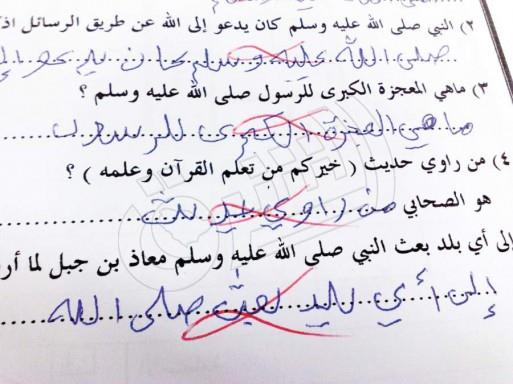 ٢) النبي صلى الله عليه وسلم كان يدعو إلى الله عن طريق الرسائل اذ
صلى الله عليه وسلم كان يدعو إ
٣) ماهي المعجزة الكبرى للرسول صلى الله عليه وسلم ؟
ما هي المعجزة الكبرى للرسول
٤) من راوي حديث ( خيركم من تعلم القرآن وعلمه ) ؟
هو الصحابي من راوي
إلى أي بلد بعث النبي صلى الله عليه وسلم معاذ بن جبل لما أر
إلى أي بلد بعث صلى الله